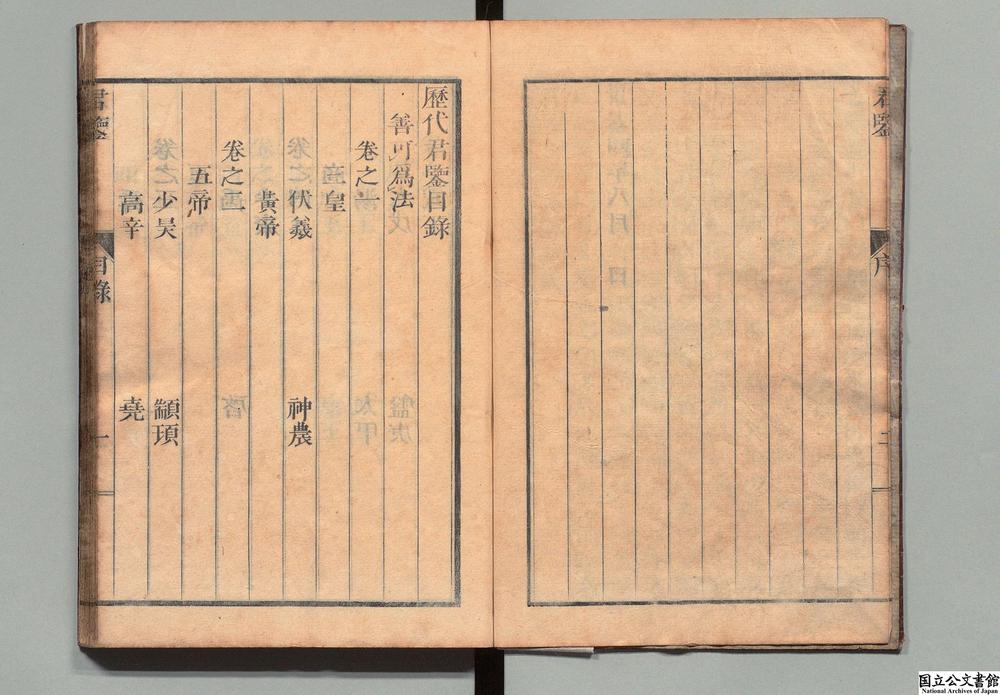 君鑒
序
歷代君鑒目錄
善可爲法
卷之一
三皇
伏羲
神農
黃帝
卷之二
五帝
少昊
顓頊
高辛
堯
君鑒
目錄
一
国立公文書館
National Archives of Japan